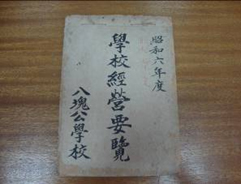 昭和六年度
學校經營要覽
八塊公學校